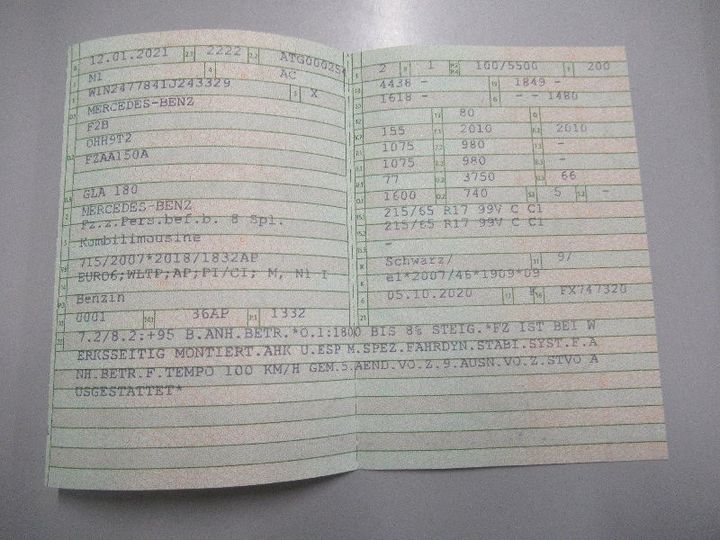 12.01.2021 2222 ATG000254
M1 AC
W1N2477841J243329 X
MERCEDES-BENZ
F2B
OHH9T2
FZAA150A
GLA 180
MERCEDES-BENZ
Fz.z.Pers.bef.b. 8 Spl.
Kombilimousine
715/2007*2018/1832AP
EURO6;WLTP;AP;PI/CI; M, N1 I
Benzin
0001 36AP 1332
2 1 100/5500 200
4438 - 1849 -
1618 - - - 1480
80
155 2010 2010
1075 980 -
1075 980 -
77 3750 66
1600 740 5 -
215/65 R17 99V C C1
215/65 R17 99V C C1
-
Schwarz/ 9/
e1*2007/46*1909*09
05.10.2020 K FX747320
7.2/8.2:+95 B.ANH.BETR.*O.1:1800 BIS 8% STEIG.*FZ IST BEI W
ERKSSEITIG MONTIERT.AHK U.ESP M.SPEZ.FAHRDYN.STABI.SYST.F.A
NH.BETR.F.TEMPO 100 KM/H GEM.5.AEND.VO.Z.9.AUSN.VO.Z.STVO A
USGESTATTET*